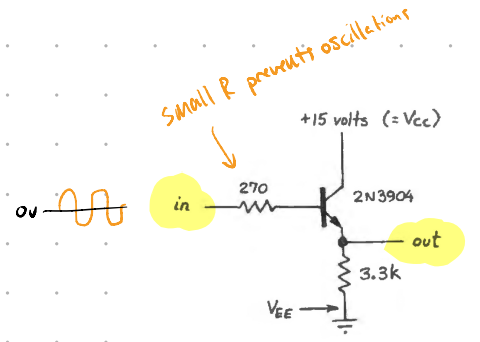 small R prevents oscillations
+15 volts (= Vcc)
270
2N3904
0v
in
out
3.3k
VEE